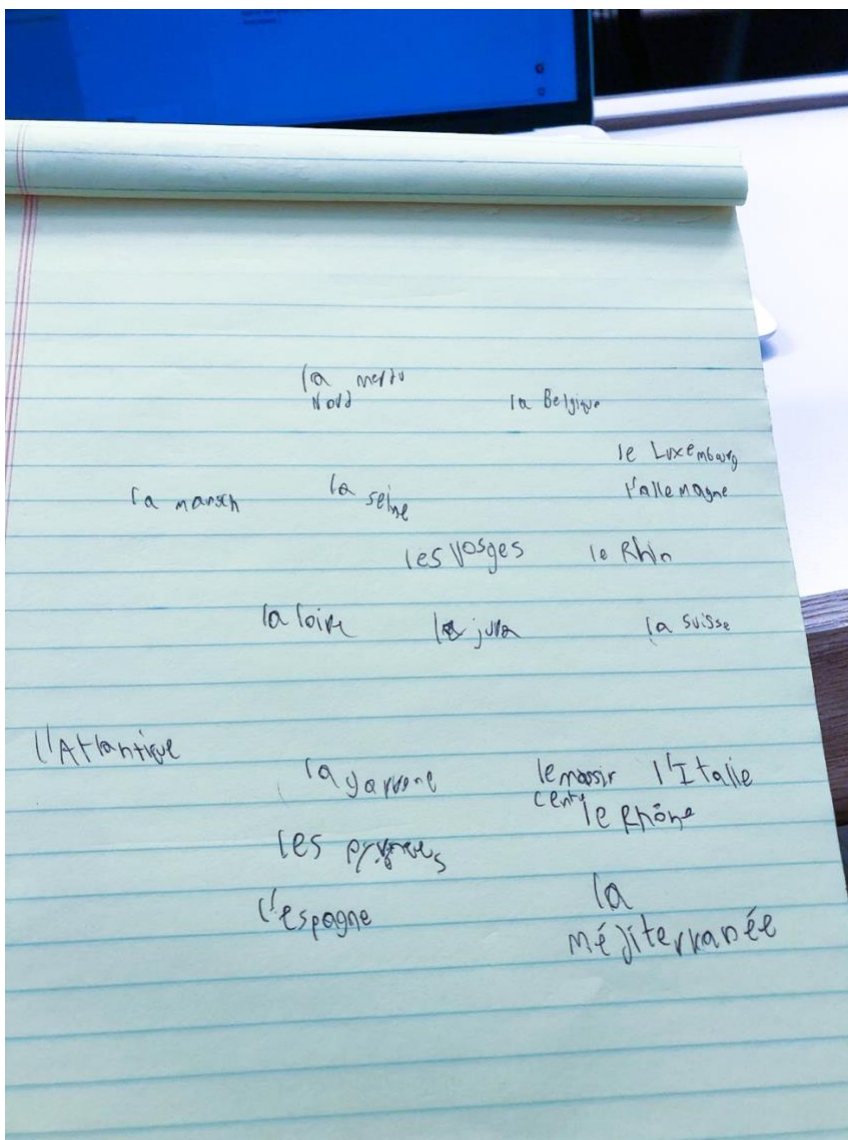 la mer du
Nord
la Belgique
le Luxembourg
la mansh la seine l'allemagne
les Vosges le Rhin
la loire le jura la suisse
l'Atlantique
la garrone le massir l'Italie
centr le Rhône
les
l'espagne la
méditerranée